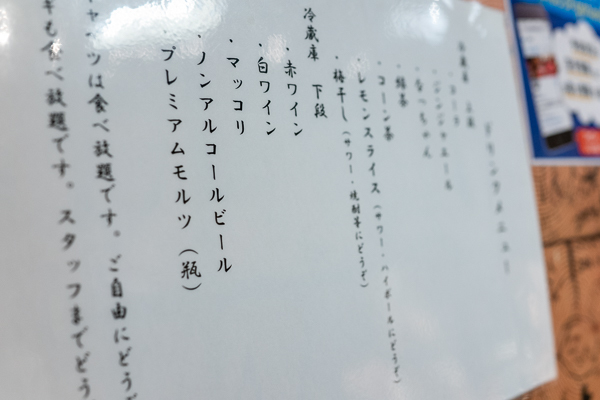 ドリンクメニュー
冷蔵庫 上段
・コーラ
・ジンジャエール
・なっちゃん
・緑茶
・コーン茶
・レモンスライス(サワー・ハイボールにどうぞ)
・梅干し(サワー・焼酎等にどうぞ)
冷蔵庫 下段
・赤ワイン
・白ワイン
・マッコリ
・ノンアルコールビール
・プレミアムモルツ(瓶)
ャベツは食べ放題です。ご自由にどうぞ
も食べ放題です。スタッフまでどう